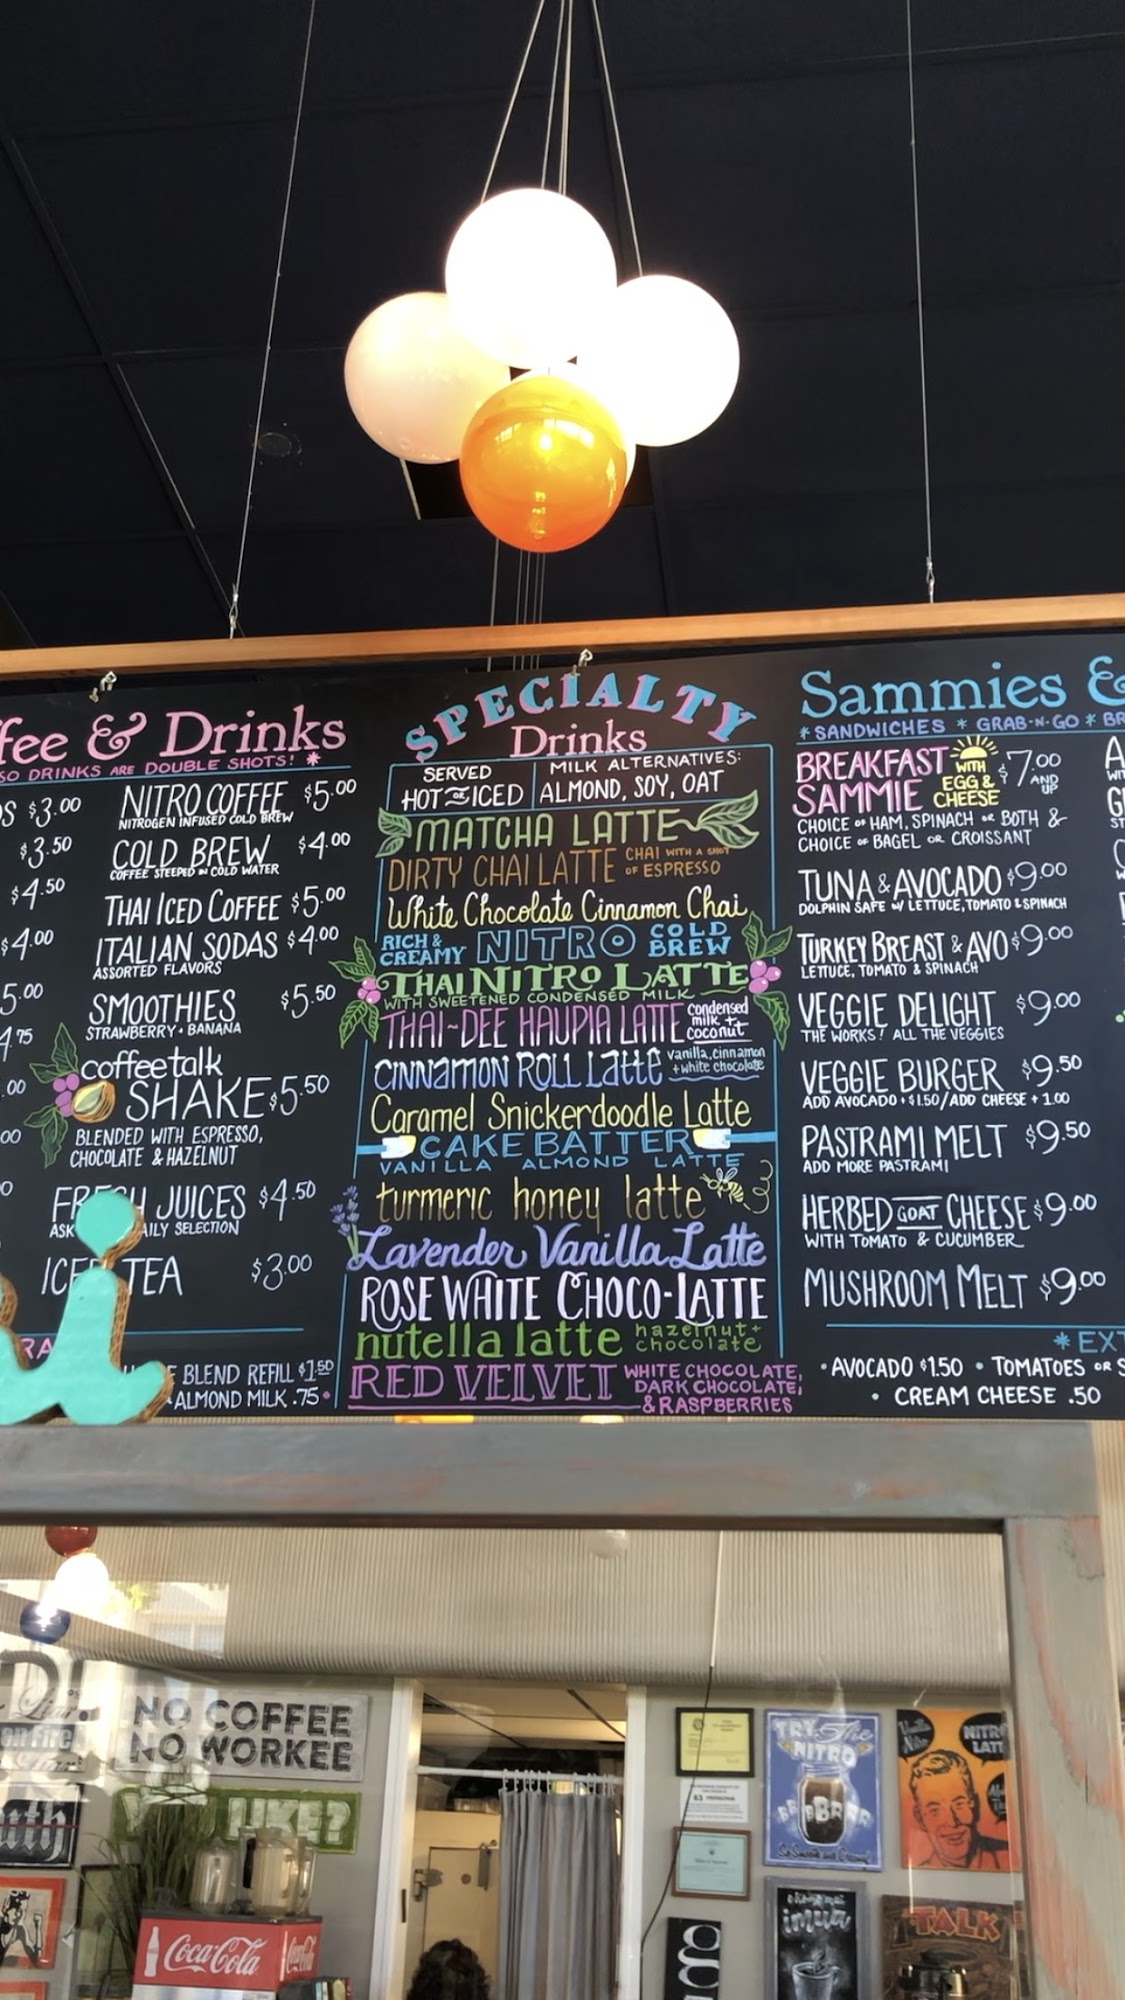 fee & Drinks
SO DRINKS ARE DOUBLE SHOTS! *
$3.00
$3.50
$4.50
$4.00
5.00
4.75
.00
NITRO COFFEE $5.00
NITROGEN INFUSED COLD BREW
COLD BREW $4.00
COFFEE STEEPED IN COLD WATER
THAI ICED COFFEE $5.00
ITALIAN SODAS $4.00
ASSORTED FLAVORS
SMOOTHIES $5.50
STRAWBERRY • BANANA
coffee talk
SHAKE $5.50
BLENDED WITH ESPRESSO,
CHOCOLATE & HAZELNUT
FRESH JUICES $4.50
ASK DAILY SELECTION
ICED TEA $3.00
BLEND REFILL $1.50
ALMOND MILK .75 •
SPECIALTY
Drinks
SERVED
HOT OR ICED
MILK ALTERNATIVES:
ALMOND, SOY, OAT
MATCHA LATTE
DIRTY CHAI LATTE CHAI WITH A SHOT
OF ESPRESSO
White Chocolate Cinnamon Chai
RICH &
CREAMY NITRO COLD
BREW
THAI NITRO LATTE
WITH SWEETENED CONDENSED MILK
THAI-DEE HAUPIA LATTE condensed
milk +
coconut
CINNAMON ROLL LATTE vanilla, cinnamon
+ white chocolate
Caramel Snickerdoodle Latte
CAKE BATTER
VANILLA ALMOND LATTE
turmeric honey latte
Lavender Vanilla Latte
ROSE WHITE CHOCO-LATTE
nutella latte hazelnut +
chocolate
RED VELVET WHITE CHOCOLATE,
DARK CHOCOLATE,
& RASPBERRIES
Sammies &
* SANDWICHES * GRAB-N-GO * BR
BREAKFAST
SAMMIE
WITH
EGG &
CHEESE
$7.00
AND
UP
CHOICE OF HAM, SPINACH OR BOTH &
CHOICE OF BAGEL OR CROISSANT
TUNA & AVOCADO $9.00
DOLPHIN SAFE W/ LETTUCE, TOMATO & SPINACH
TURKEY BREAST & AVO $9.00
LETTUCE, TOMATO & SPINACH
VEGGIE DELIGHT $9.00
THE WORKS! ALL THE VEGGIES
VEGGIE BURGER $9.50
ADD AVOCADO + $1.50 / ADD CHEESE + 1.00
PASTRAMI MELT $9.50
ADD MORE PASTRAMI
HERBED GOAT CHEESE $9.00
WITH TOMATO & CUCUMBER
MUSHROOM MELT $9.00
* EXT
• AVOCADO $1.50 • TOMATOES OR S
• CREAM CHEESE .50
NO COFFEE
NO WORKEE
LIKE?
Liar
on Fire
Coca-Cola
63 PERSONS
TRY the
NITRO
BRRR
So Smooth and Creamy!
Vanilla
Nitro
NITRO
LATTE
imua
TALK